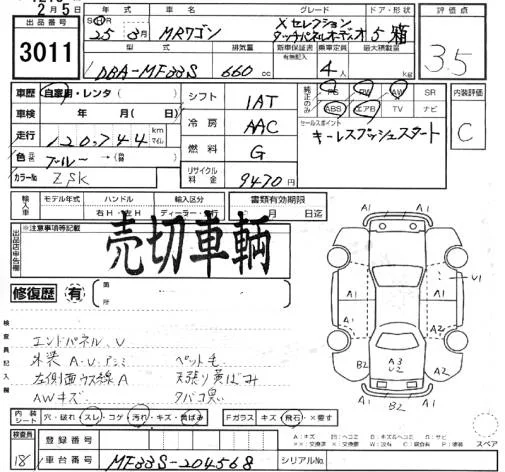 2月5日
出品番号
3011
年式 車名 グレード ドア・形状 評価点
25 3月 MRワゴン Xセレクション 5 箱
タッチパネルオーディオ
3.5
型式 排気量 新車保証書 乗車定員 最大積載量
有無記入
DBA-MF33S 660 cc 4人 kg
車歴 自家用・レンタ( )
シフト 1AT
純正のみ PS PW AW SR
ABS エアB TV ナビ
内装評価 C
車検 年 月( 日)
冷房 AAC
セールスポイント
キーレスプッシュスタート
走行 120,744 km マイル
燃料 G
色 ブルー → (替)
カラーNo ZJSK
リサイクル料金 9470 円
輸入車 モデル年式 ハンドル 輸入区分
右H・左H ディーラー・並行
書類有効期限
月 日迄
※注意事項等記載
出品店申告欄
売切車輌
修復歴 有 箇所
検査員記入欄
エンドパネル、U
外装 A・U、アミミ ペット毛
左側面ウス線A 天張り黄ばみ
AWキズ タバコ臭
A1
A1 A1
U1
A1 A1
A1
B2 A3 U2 B2
A2 A2
B2
内装シート 穴・破れ・スレ・コゲ・汚れ・キズ・黄ばみ
Fガラス キズ・飛石・×要す
スペア
検査員 18
登録番号
車台番号 MF33S-204568
シリアルNo.